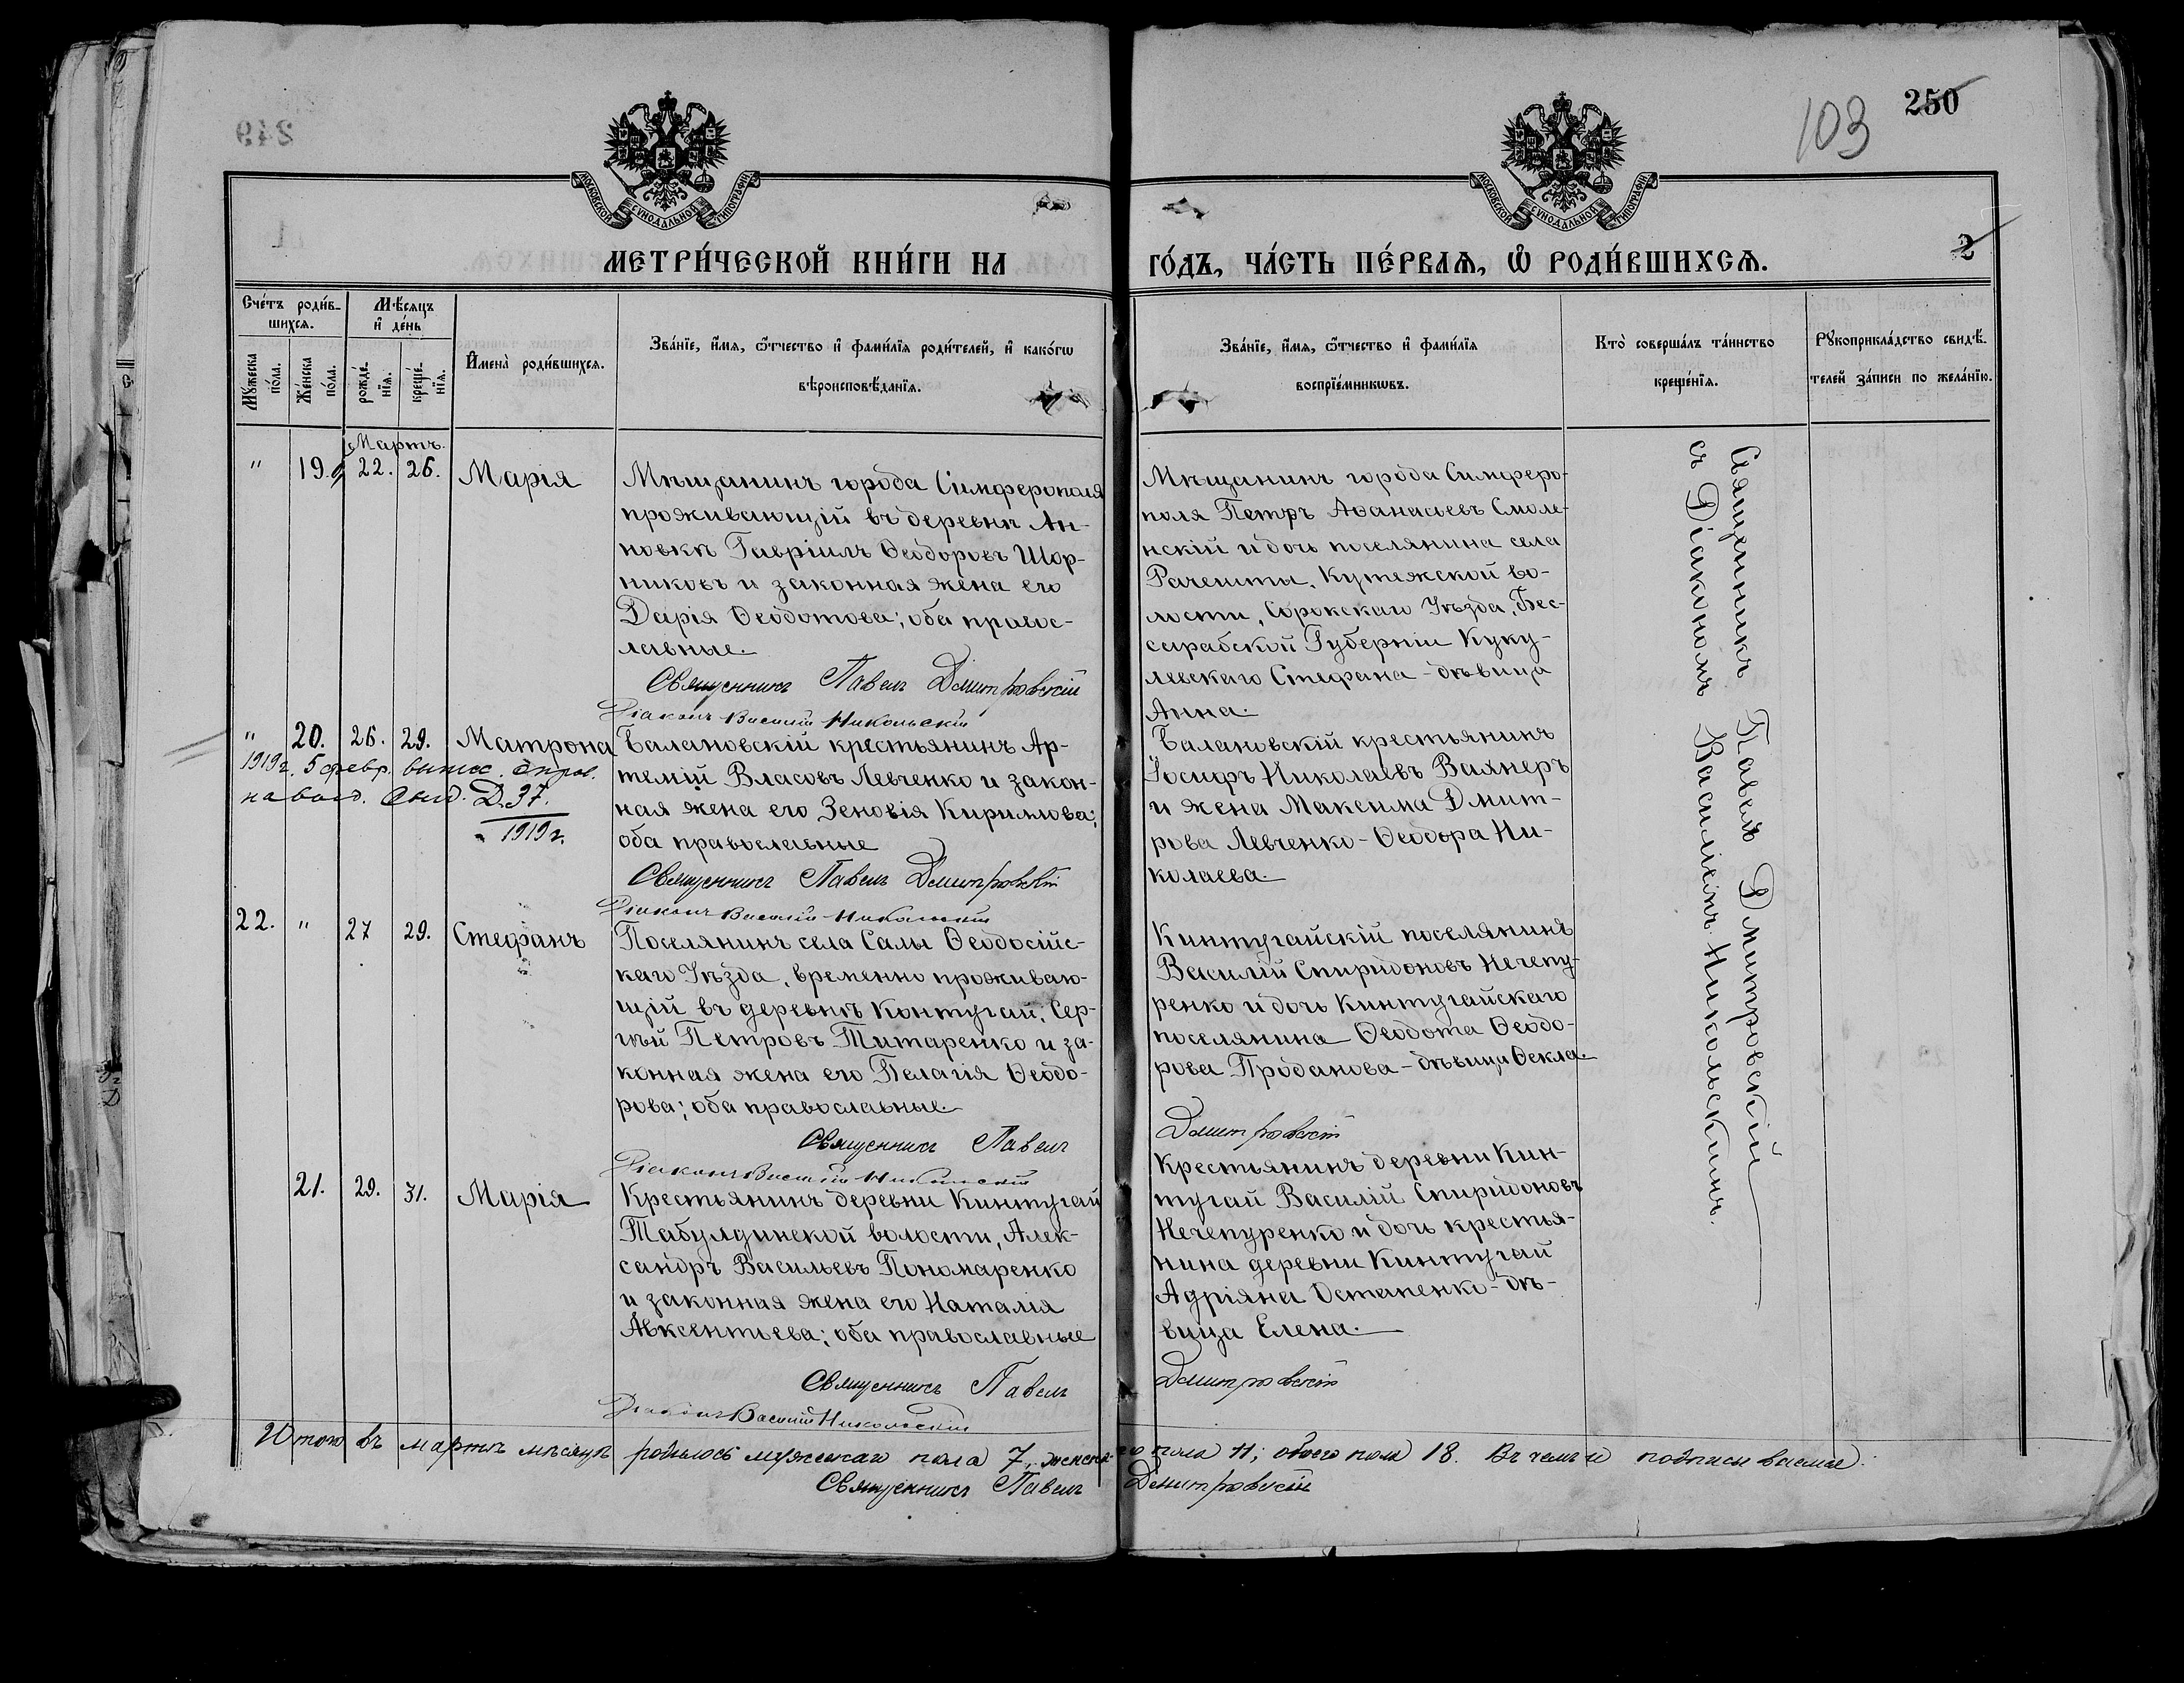 103
250
249
МОСКОВСКОЙ СѴНОДАЛЬНОЙ ТИПОГРАФІИ
МОСКОВСКОЙ СѴНОДАЛЬНОЙ ТИПОГРАФІИ
2
МЕТРИ́ЧЕСКОЙ КНИ́ГИ НА ГО́ДЪ, ЧА́СТЬ ПЕ́РВАѦ, Ѡ҆ РОДИ́ВШИХСѦ.
Сче́тъ роди́в-
шихсѧ.
Мꙋ́жеска по́ла.
Же́нска по́ла.
Мѣ́сѧцъ
и҆ де́нь
рожде́-
нїѧ.
креще́-
нїѧ.
И҆мена̀ роди́вшихсѧ.
Зва́нїе, и҆́мѧ, ѻ҆́тчество и҆ фами́лїѧ роди́телей, и҆ како́гѡ
вѣроисповѣ́данїѧ.
Зва́нїе, и҆́мѧ, ѻ҆́тчество и҆ фами́лїѧ
воспрїе́мникѡвъ.
Кто̀ соверша́лъ та́инство
креще́нїѧ.
Рꙋкоприкла́дство свидѣ́-
телей за́писи по жела́нїю.
Мартъ.
" 19. 22. 26. Марія
Мѣщанинъ города Симферополя
проживающій въ деревнѣ Ан-
новкѣ Гавріилъ Ѳеодоровъ Шор-
никовъ и законная жена его
Дарія Ѳеодотова; оба правос-
лавные.
Священникъ Павелъ Дмитровскій
Діаконъ Василій Никольскій
Мѣщанинъ города Симферо-
поля Петръ Аѳанасьевъ Смоле-
нскій и дочь поселянина села
Рачешты, Кутежской во-
лости, Сорокскаго Уѣзда, Бес-
сарабской Губерніи Куку-
левскаго Стефана - дѣвица
Анна.
" 20. 26. 29. Матрона
1919 г. 5 февр.
Д. 37.
1919 г.
Балановскій крестьянинъ Ар-
темій Власовъ Левченко и закон-
ная жена его Зеновія Кириллова;
оба православные
Священникъ Павелъ Дмитровскій
Діаконъ Василій Никольскій
Балановскій крестьянинъ
Іосифъ Николаевъ Ваянеръ
и жена Максима Дмит-
рова Левченко - Ѳеодора Ни-
колаева.
22. " 27 29. Стефанъ
Поселянинъ села Салы Ѳеодосійс-
каго Уѣзда, временно проживаю-
щій въ деревнѣ Контугай, Сер-
гѣй Петровъ Титаренко и за-
конная жена его Пелагія Ѳеодо-
рова; оба православные.
Священникъ Павелъ Дмитровскій
Діаконъ Василій Никольскій
Кинтугайскій поселянинъ
Василій Спиридоновъ Нечепу-
ренко и дочь Кинтугайскаго
поселянина Ѳеодота Ѳеодо-
рова Проданова - дѣвица Ѳекла.
21. 29. 31. Марія
Крестьянинъ деревни Кинтугай
Табулдинской волости, Алек-
сандръ Васильевъ Пономаренко
и законная жена его Наталія
Авксентьева; оба православные
Священникъ Павелъ Дмитровскій
Діаконъ Василій Никольскій
Крестьянинъ деревни Кин-
тугай Василій Спиридоновъ
Нечепуренко и дочь крестья-
нина деревни Кинтугай
Адріяна Остапенко - дѣ-
вица Елена.
Священникъ Павелъ Дмитровскій
съ Діакономъ Василіемъ Никольскимъ.
Итого въ мартѣ мѣсяцѣ родилось мужескаго пола 7, женскаго пола 11; обоего пола 18. Въ чемъ и подписываемся.
Священникъ Павелъ Дмитровскій